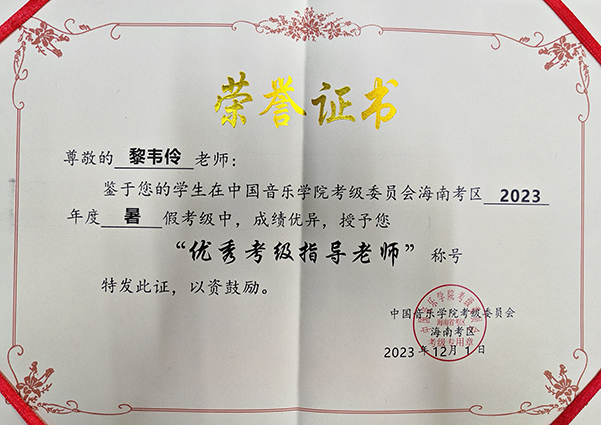 荣誉证书
尊敬的 黎韦伶 老师：
鉴于您的学生在中国音乐学院考级委员会海南考区 2023
年度 暑 假考级中，成绩优异，授予您
“优秀考级指导老师”称号
特发此证，以资鼓励。
中国音乐学院考级委员会
海南考区
2023年12月1日
中国音乐学院考级委员会
海南省考区
考级专用章